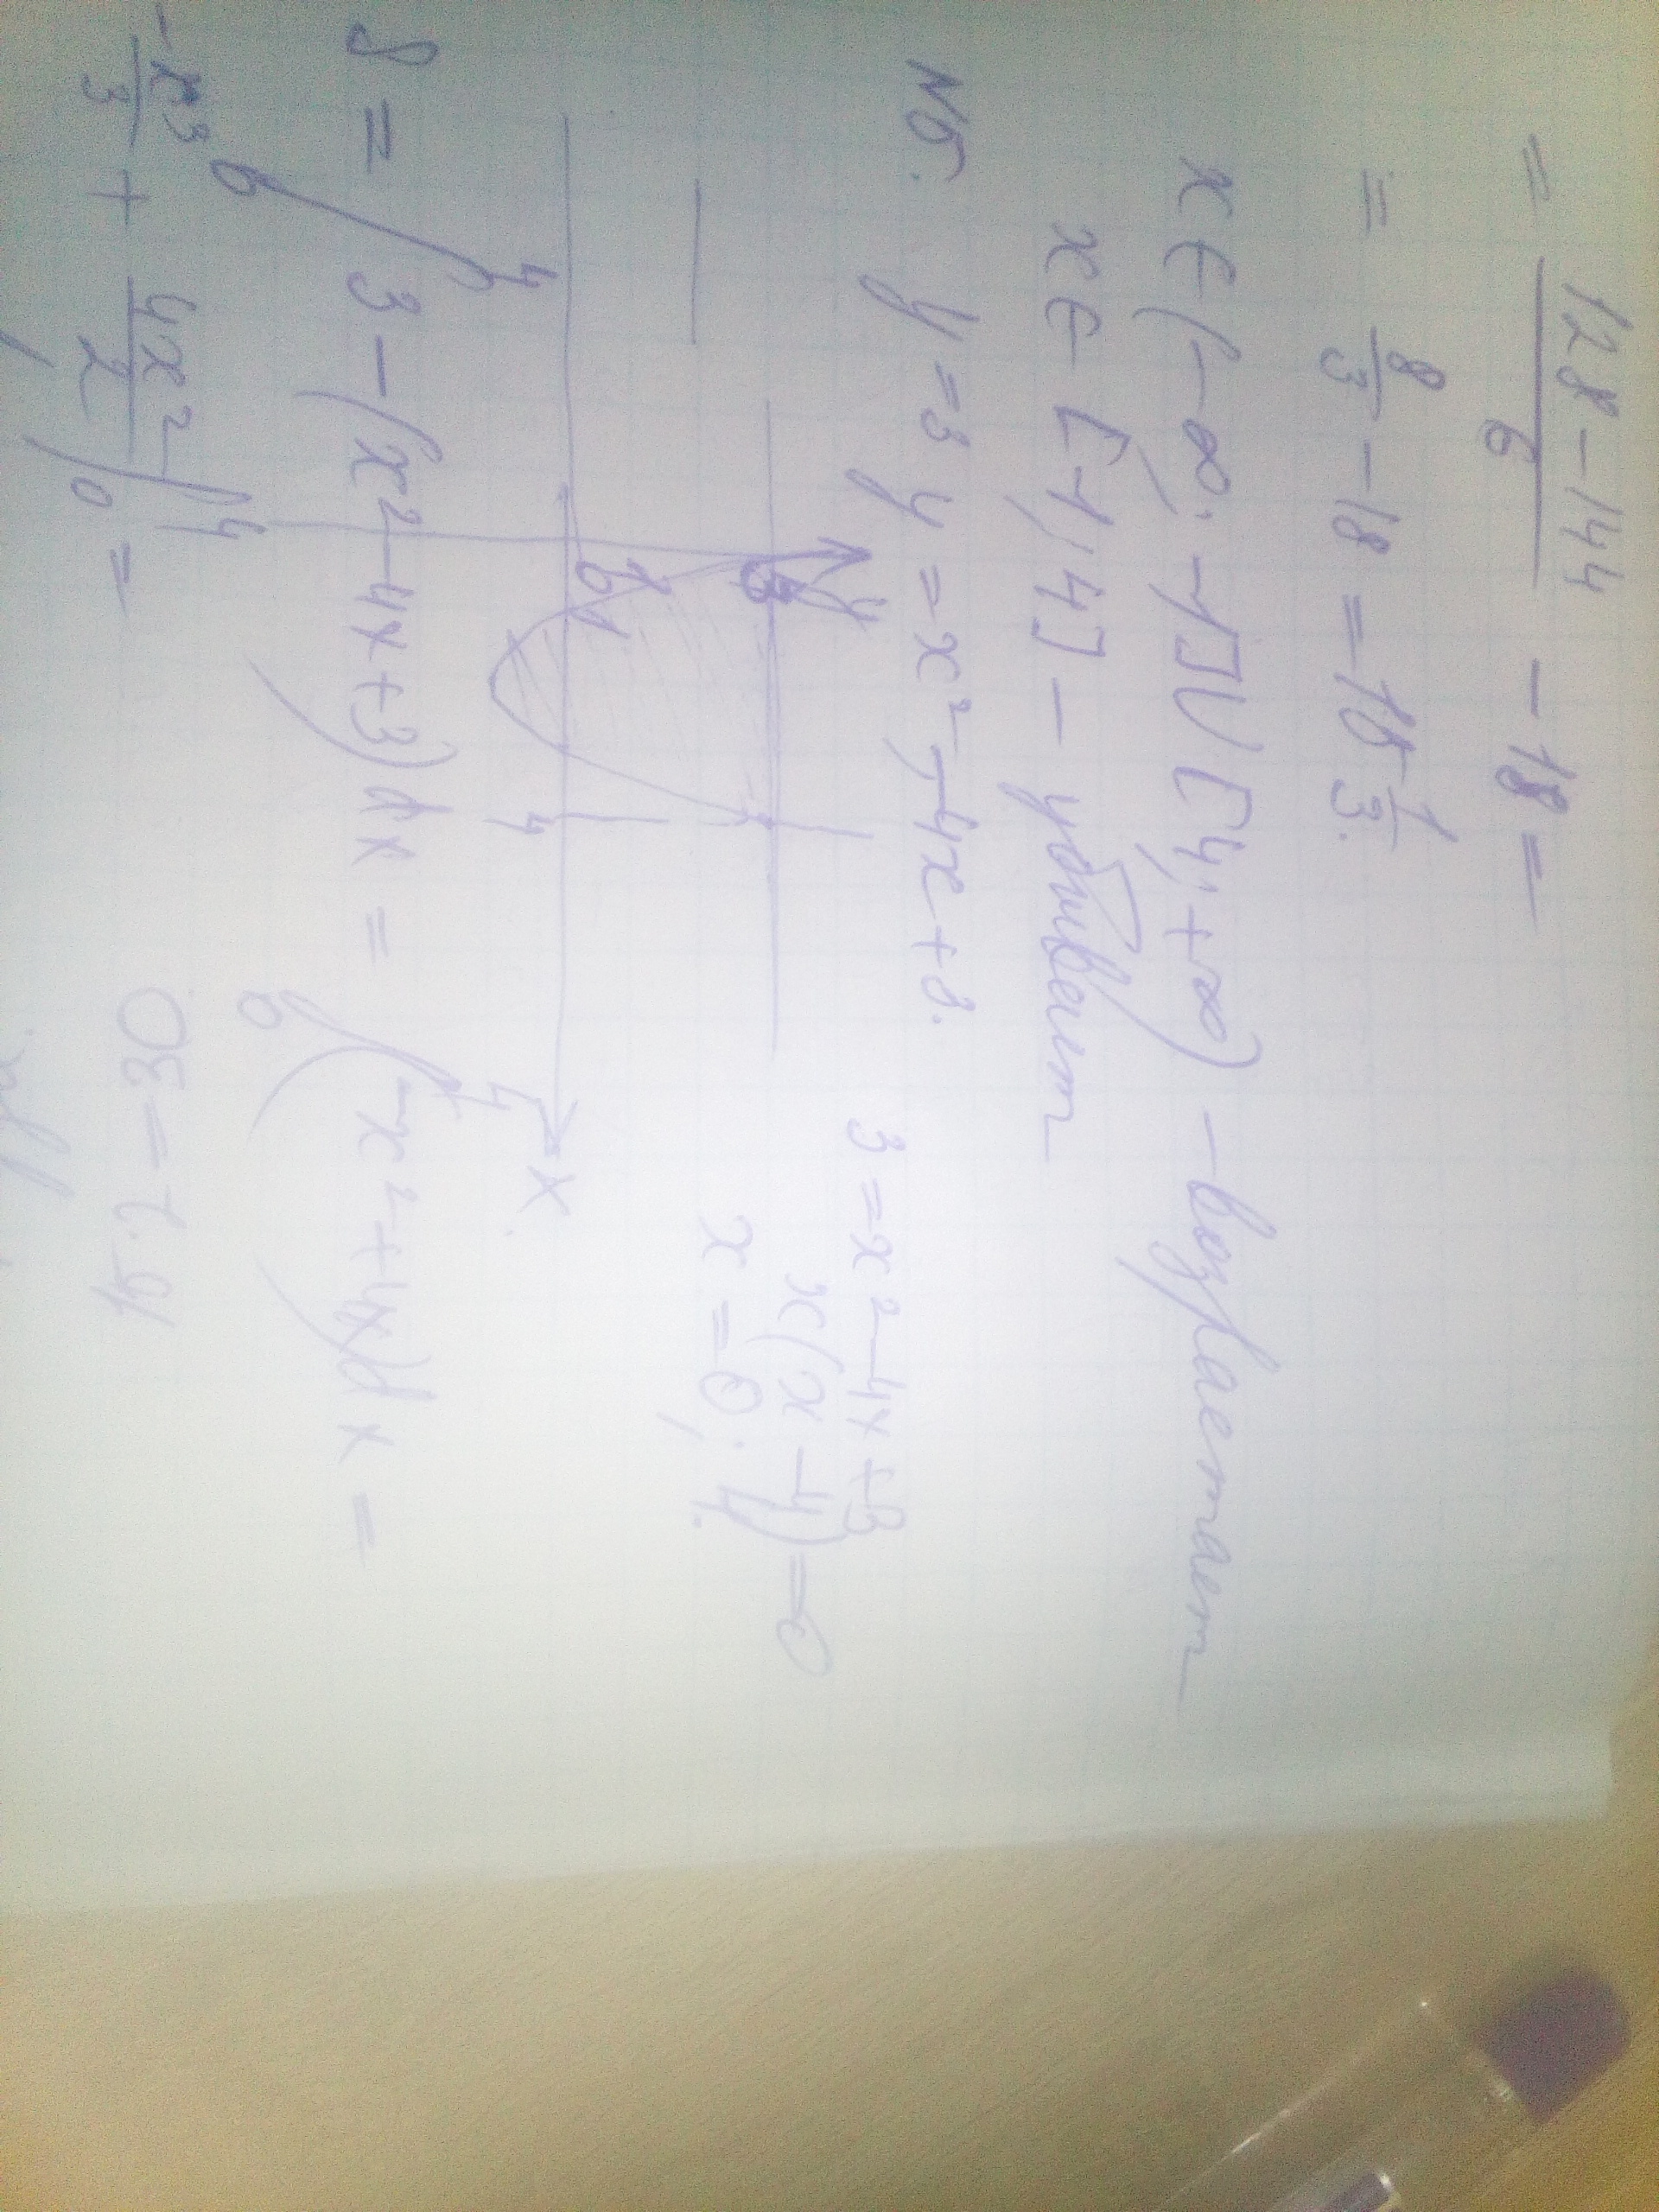 = (128 - 144)/6 - 18 =
= 8/3 - 18 = -15 1/3.
x ∈ (-∞; -1] U [4; +∞) - возрастает
x ∈ [-1; 4] - убывает
№5. y = 3 y = x² - 4x + 3.
3 = x² - 4x + 3
x(x - 4) = 0
x = 0; 4.
y
3
1
0 1
4
x
S = ∫₀⁴ 3 - (x² - 4x + 3) dx = ∫₀⁴ (-x² + 4x) dx =
-x³/3 + 4x²/2 |₀⁴ =
15.2 - 30